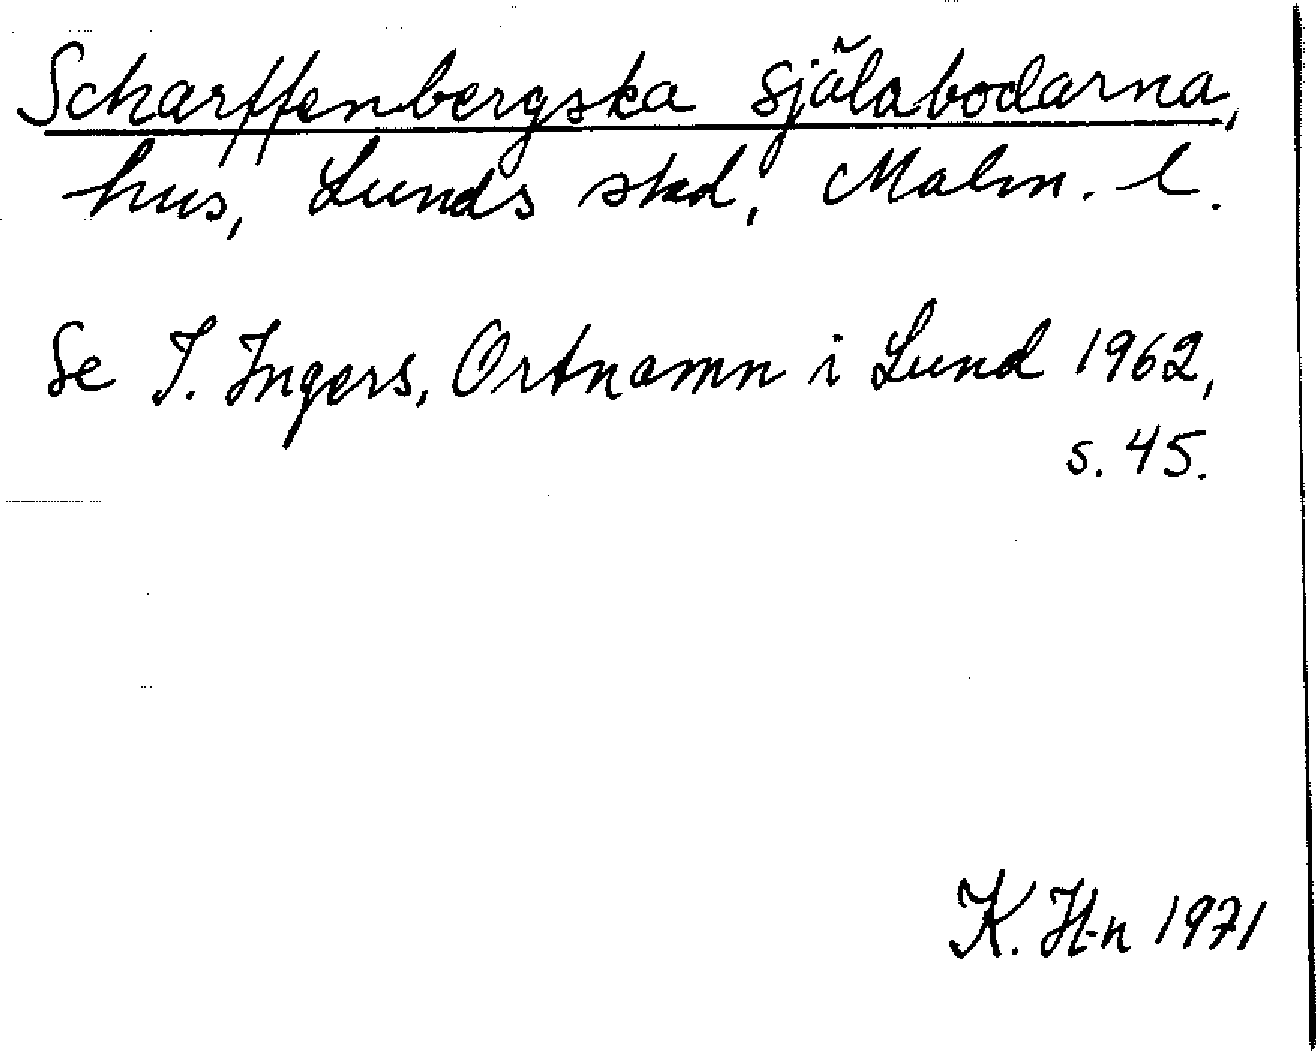 Scharffenbergska själabodarna,
hus, Lunds stad, Malm. l.
Se I. Ingers, Ortnamn i Lund 1962,
s. 45.
K. H-n 1971